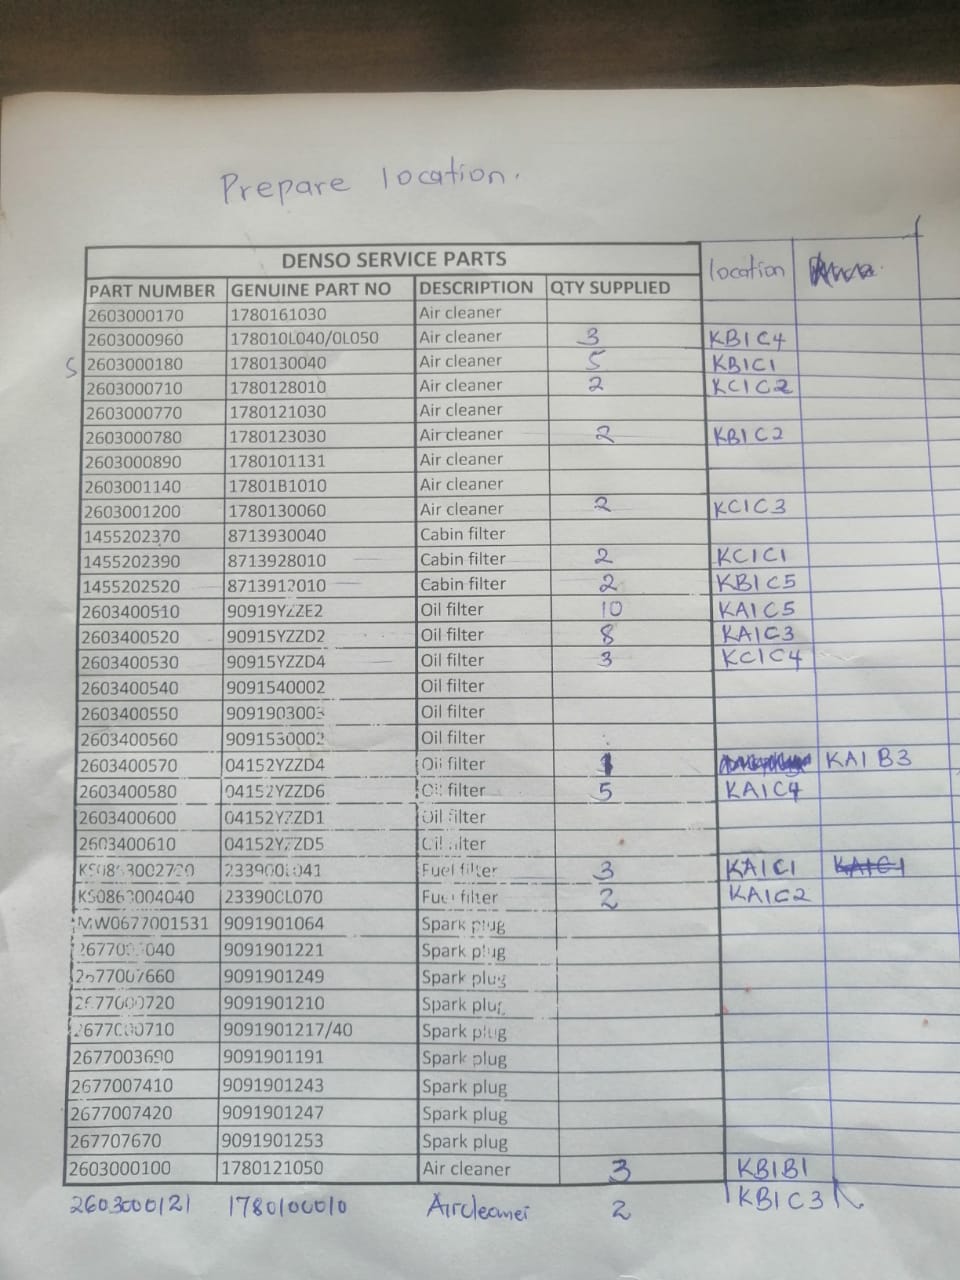 Prepare location.
DENSO SERVICE PARTS
PART NUMBER GENUINE PART NO DESCRIPTION QTY SUPPLIED location
2603000170 1780161030 Air cleaner
2603000960 178010L040/0L050 Air cleaner 3 KB1C4
S 2603000180 1780130040 Air cleaner 5 KB1C1
2603000710 1780128010 Air cleaner 2 KC1C2
2603000770 1780121030 Air cleaner
2603000780 1780123030 Air cleaner 2 KB1C2
2603000890 1780101131 Air cleaner
2603001140 17801B1010 Air cleaner
2603001200 1780130060 Air cleaner 2 KC1C3
1455202370 8713930040 Cabin filter
1455202390 8713928010 Cabin filter 2 KC1C1
1455202520 8713912010 Cabin filter 2 KB1C5
2603400510 90919YZZE2 Oil filter 10 KA1C5
2603400520 90915YZZD2 Oil filter 8 KA1C3
2603400530 90915YZZD4 Oil filter 3 KC1C4
2603400540 9091540002 Oil filter
2603400550 9091903003 Oil filter
2603400560 9091530002 Oil filter
2603400570 04152YZZD4 Oil filter 1 KA1B3
2603400580 04152YZZD6 Oil filter 5 KA1C4
2603400600 04152YZZD1 Oil filter
2603400610 04152YZZD5 Oil filter
Fuel filter 3 KA1C1 KA1C1
KS0863004040 23390CL070 Fuel filter 2 KA1C2
MW0677001531 9091901064 Spark plug
9091901221 Spark plug
2677007660 9091901249 Spark plug
2677000720 9091901210 Spark plug
9091901217/40 Spark plug
2677003690 9091901191 Spark plug
2677007410 9091901243 Spark plug
2677007420 9091901247 Spark plug
267707670 9091901253 Spark plug
2603000100 1780121050 Air cleaner 3 KB1B1
2603000121 1780100010 Aircleaner 2 KB1C3